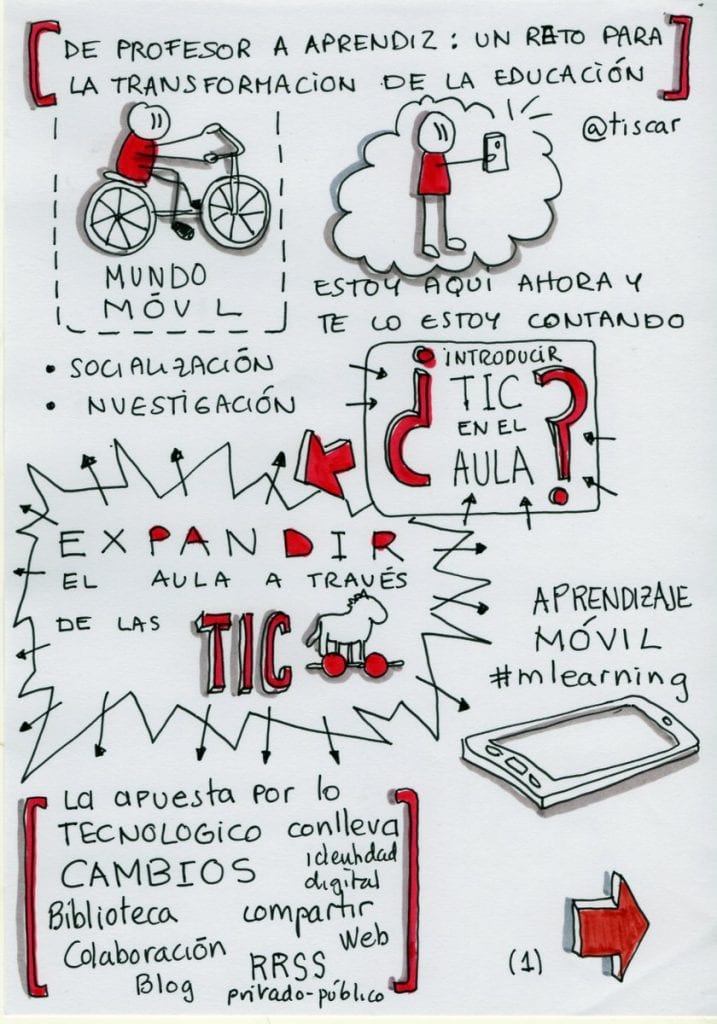 DE PROFESOR A APRENDIZ: UN RETO PARA
LA TRANSFORMACION DE LA EDUCACIÓN
@tiscar
MUNDO
MÓVIL
ESTOY AQUI AHORA Y
TE LO ESTOY CONTANDO
• SOCIALIZACIÓN
• NVESTIGACIÓN
¿INTRODUCIR
TIC
EN EL
AULA?
EXPANDIR
EL AULA A TRAVÉS
DE LAS TIC
APRENDIZAJE
MÓVIL
#mlearning
La apuesta por lo
TECNOLOGICO conlleva
CAMBIOS identidad
digital
Biblioteca compartir
Colaboración Web
RRSS
Blog privado-público
(1)